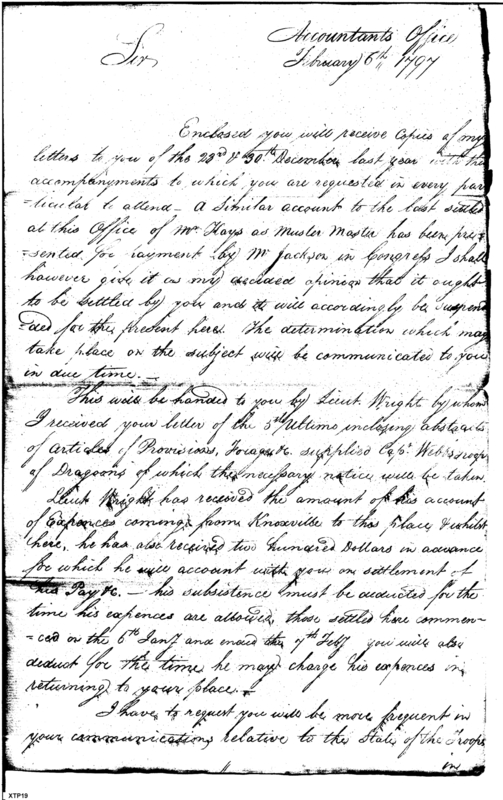 Accountants Office
Sir, February 6th 1797
Enclosed you will receive Copies of my
letters to you of the 23rd & 30th December last year with the
accompanyments to which you are requested in every par
=ticular to attend - A Similar account to the last settled
at this Office of Mr Hays as Muster Master has been pre=
=sented for payment by Mr Jackson in Congress I shall
however give it as my decided opinion that it ought
to be settled by you and it will accordingly be suspen
ded for the present here. The determination which may
take place on the subject will be communicated to you
in due time. -
This will be handed to you by Lieut Wright by whom
I received your letter of the 5th Ultimo inclosing abstracts
of articles of Provisions, Forage &c. supplied Capt. Webbs troop
of Dragoons of which the necessary notice will be taken
Lieut Wright has received the amount of his account
of Expences coming from Knoxville to this place & whilst
here, he has also received two hundred Dollars in advance
for which he will account with you on settlement of
his Pay &c. - his subsistence must be deducted for the
time his expences are allowed, those settled here commen-
=ced on the 6th Jany and ended the 7th Feby you will also
deduct for the time he may charge his expences in
returning to your place. -
I have to request you will be more frequent in
your communications relative to the State of the Troops
in
XTP19